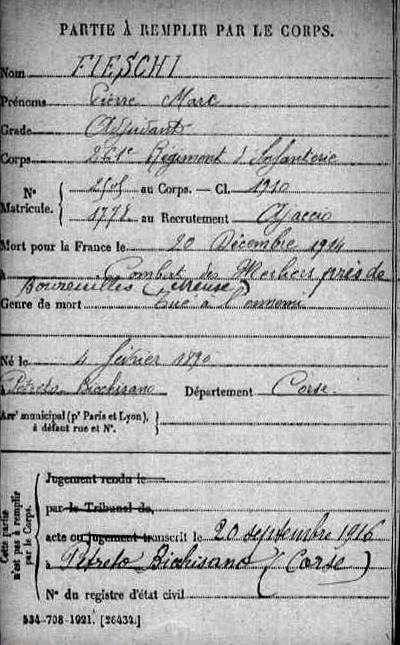 PARTIE À REMPLIR PAR LE CORPS.
Nom FIESCHI
Prénoms Pierre Marc
Grade Adjudant
Corps Régiment d'Infanterie
N° Matricule. { au Corps. — Cl. 1910
1778 au Recrutement Ajaccio
Mort pour la France le 20 Décembre 1914
à Combat des Merliers près de
Boureuilles (Meuse)
Genre de mort Tué à l'ennemi
Né le 4 février 1890
Petreto Bicchisano Département Corse.
Arr' municipal (p' Paris et Lyon), à défaut rue et N°. }
Cette partie n'est pas à remplir par le Corps.
Jugement rendu le
par le Tribunal de
acte ou jugement transcrit le 20 septembre 1916
à Petreto Bicchisano (Corse)
N° du registre d'état civil
534-708-1921. [26434.]